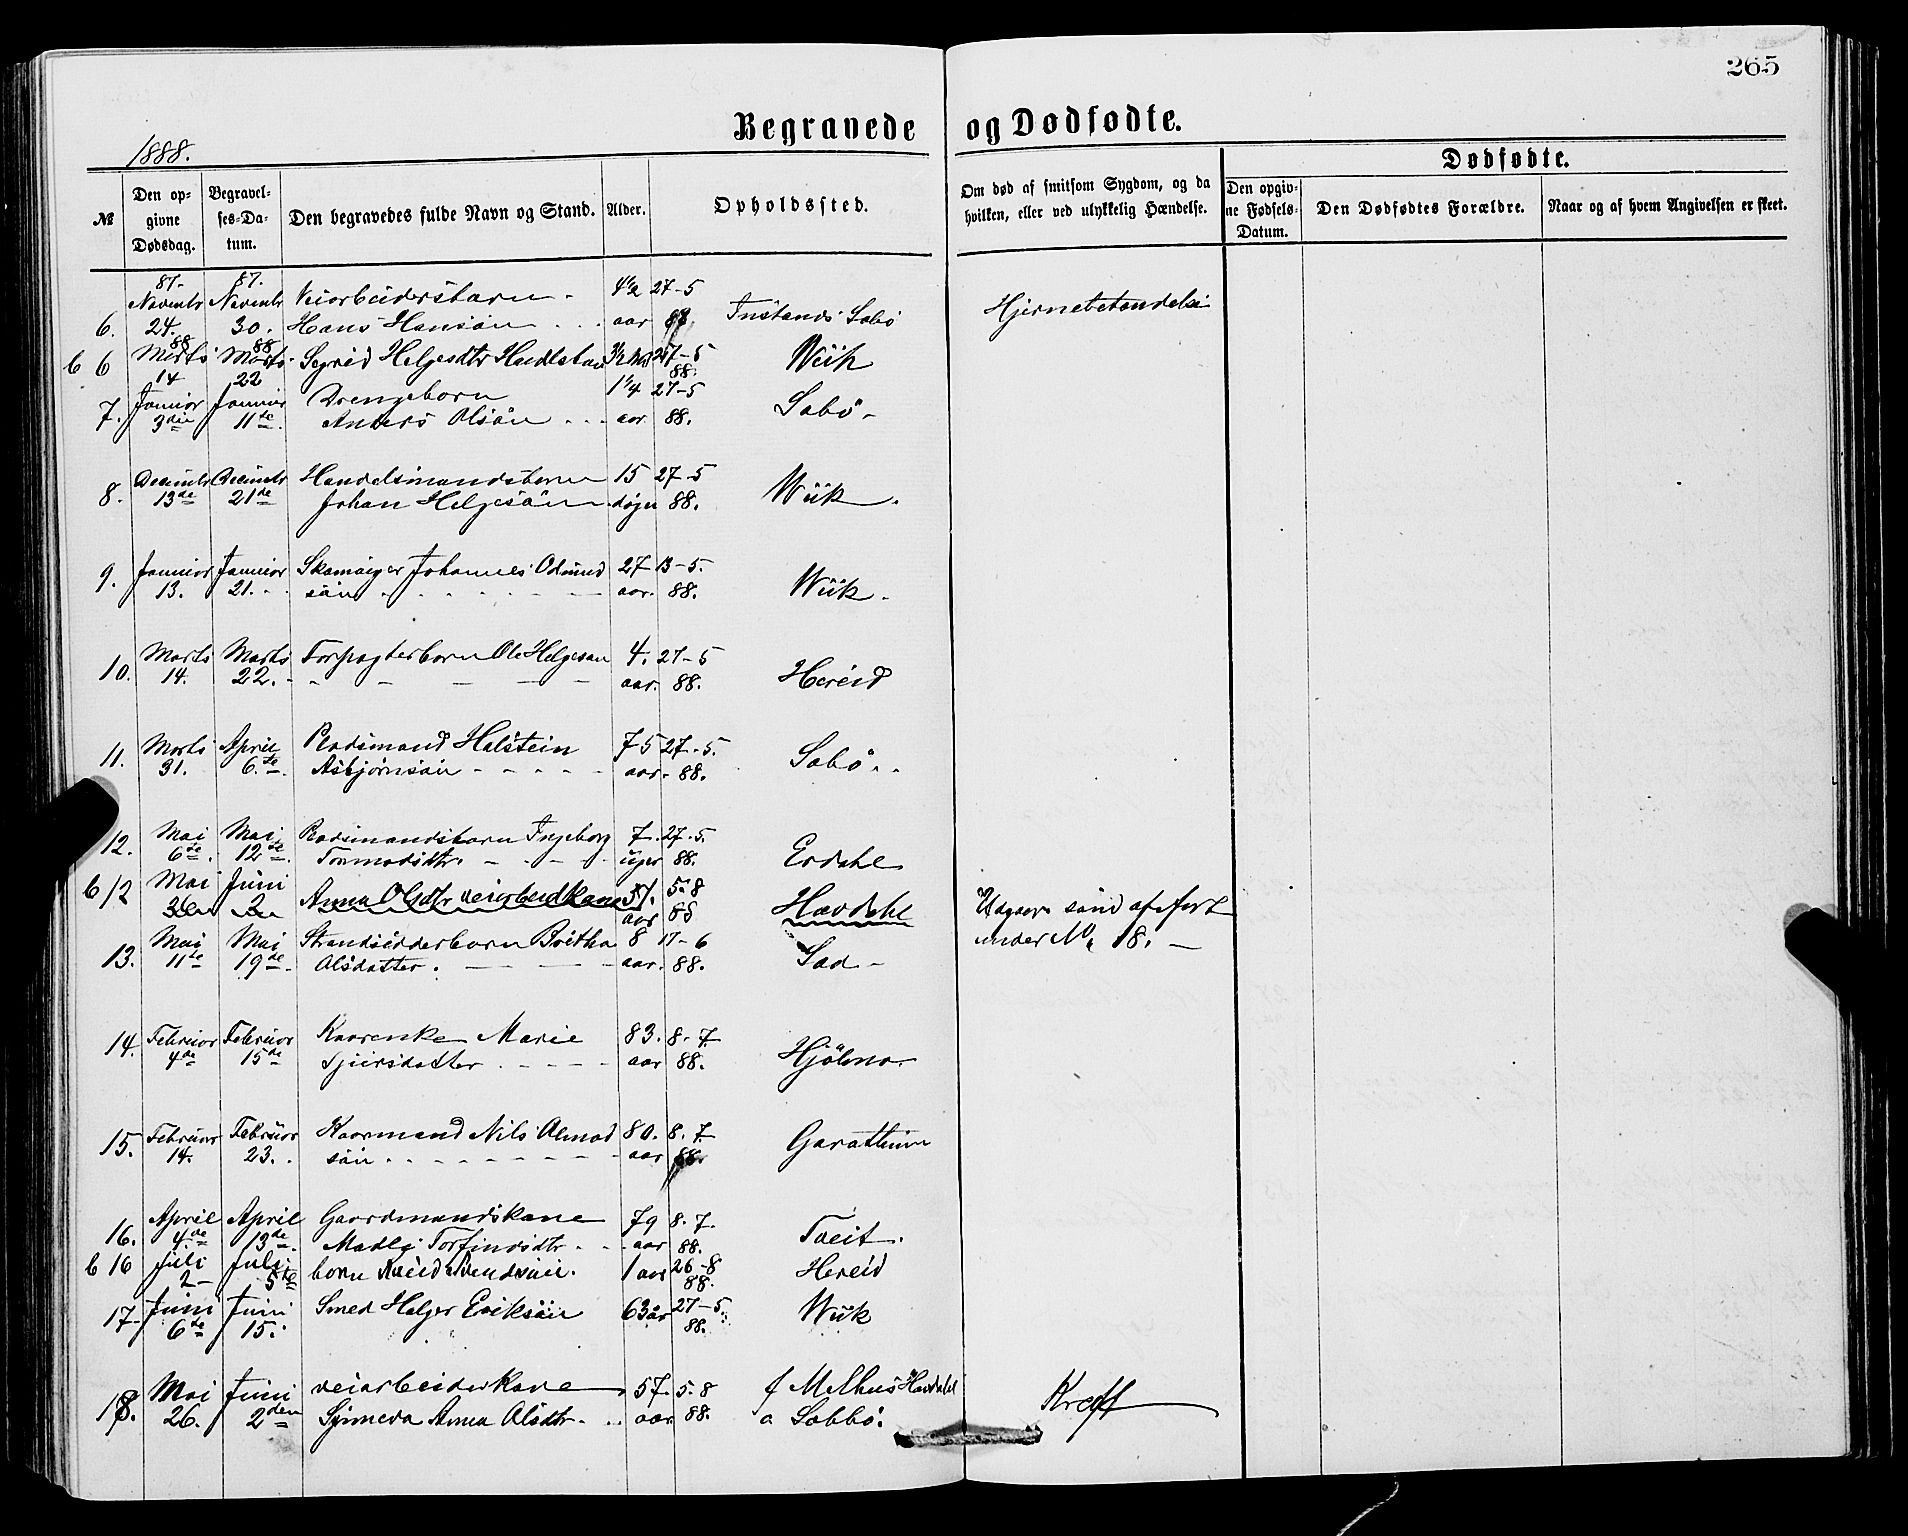 265
Begravede og Dødfødte.
1888.
Dødfødte.
№ Den opgivne Dødsdag. Begravelses-Datum. Den begravedes fulde Navn og Stand. Alder. Opholdssted. Om død af smitsom Sygdom, og da hvilken, eller ved ulykkelig Hændelse. Den opgivne Fødsels-Datum. Den Dødfødtes Forældre. Naar og af hvem Angivelsen er skeet.
87. 87.
Novembr Novembr Veiarbeidersbarn 4½ 27-5
6. 24. 30. Hans Hansøn aar 88. Sabø Hjernebetændelse
88 88
b 6 Marts Marts Sigrid Helgesdtr 27-5 Wiik
14 22 88.
Januar Januar Drengebarn 1¼ 27-5
7. 3die 11te Anders Olsøn aar 88. Sabø
Decembr Decembr Handelsmandsbarn 15 27-5
8. 13de 21de Johan Helgesøn døgn 88. Wiik.
9. Januar Januar Johannes Odmund 27 13-5.
13. 21. søn aar. 88. Wiik.
10. Marts Marts Forpagterbarn Ole Helgesøn 4. 27-5
14. 22. aar. 88. Hereid
11. Marts April Pladsmand Halstein 75 27-5.
31. 6te Asbjørnsøn aar. 88. Sabø.
12. Mai Mai Pladsmandsbarn Ingeborg 7 27-5.
6te 12te Tormodsdtr. uger 88. Erdahl
b 12 Mai Juni Anna Olsdtr veiarbeidkane 57. 5-8
26 2 aar 88 Havdahl Udgaar som opført under No 18.
13. Mai Mai Strandsidderbarn Britha 8 17-6
11te 19de Olsdatter. aar. 88. Sæd
14. Februar Februar Marie 83. 8-7
4de 15de aar 88. Hjølmo
15. Februar Februar Kaarmand Nils Aamod 80. 8.7.
14. 23. søn aar 88. Garathun
16. April April Gaardmandskane 79 8.7.
4de 13de Madli Torfindsdtr aar 88. Tveit.
b 16 Juli Juli barn 1 aar 26-8 Hereid
2 5te 88.
17 Juni Juni Smed Helge Eriksøn 63 år 27-5. Wiik
6te 15. 88.
18. Mai Juni veiarbeiderkane 57. 5-8 f Melhus Havdahl
26. 2den Synneva Anna Olsdtr. aar 88. a Sabbø. Kræft